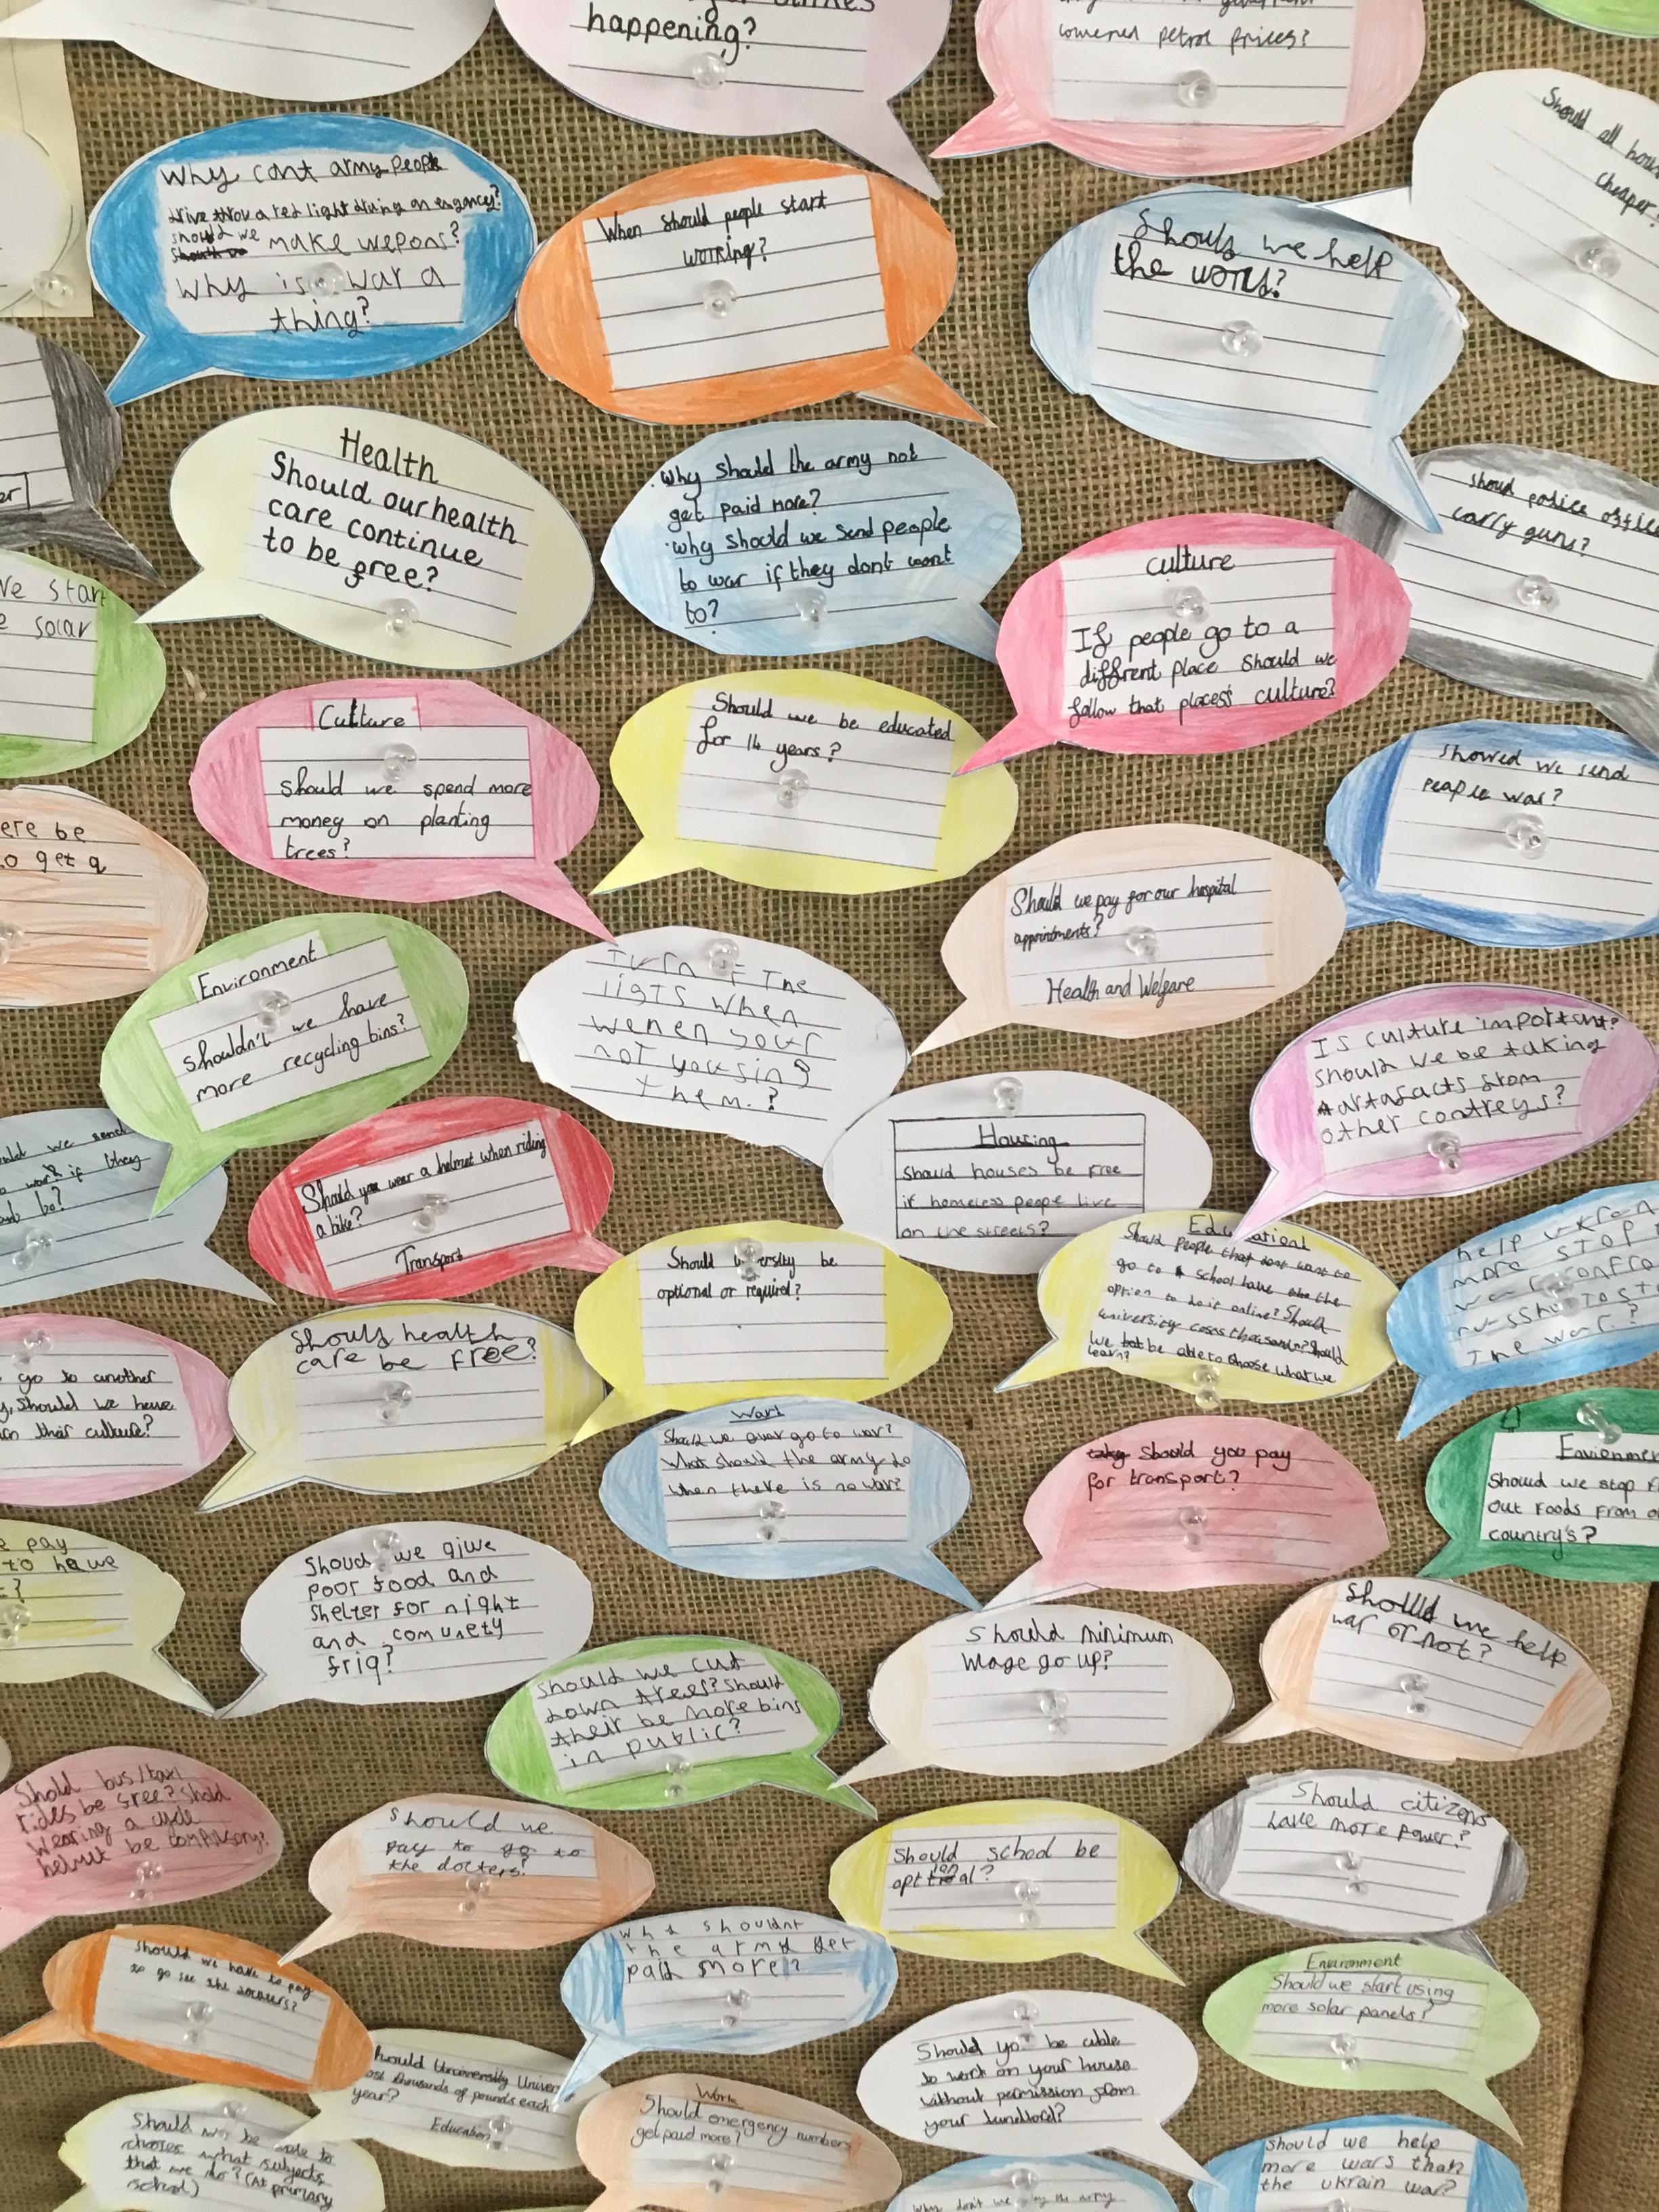 happening?
lowered petrol prices?
Should all
cheaper?
Why cant army people
drive throu a red light during an
should we make wepons?
why is war a
thing?
When should people start
working?
Should we help
the world?
Health
Should our health
care continue
to be free?
Why should the army not
get paid more?
why should we send people
to war if they dont want
to?
should police
carry guns?
culture
If people go to a
different place should we
follow that places culture?
start
solar
Culture
should we spend more
money on planting
trees?
Should we be educated
for 14 years?
showed we send
people war?
ere be
to get a
Should we pay for our hospital
appointments?
Health and Welfare
Environment
shouldn't we have
more recycling bins?
The
when
your
not yousing
them.?
Is culture important?
should we be taking
artafacts from
other contreys?
Housing
should houses be free
if homeless people live
on the streets?
we send
if they
Should you wear a helmet when riding
a bike?
Transport
Should be
optional or required?
Should people that dont want to
go to school have the
option to do it online? Should
university coses thousands? Should
We be able to choose what we
learn?
help
more STOP
The war.?
go to another
should we have
their culture?
Should health
care be free?
War!
Should we ever go to war?
What should the army do
when there is no war?
should you pay
for transport?
Should we stop
out foods from
country's?
pay
to have
Shoud we give
poor food and
shelter for night
and comunety
frig?
should we cut
down trees? Should
their be more bins
in public?
Should minimum
wage go up?
should we help
war or not?
Should bus/taxi
rides be free? Shold
wearing a cycle
helmet be
Should we
pay to go to
the docters?
Should school be
Should citizens
have more power?
Should we have to pay
to go see the
shouldnt
the army get
paid more?
Environment
Should we start using
more solar panels?
University
thousands of pounds each
year?
Education
Should you be able
to work on your house
without permission from
your landlord?
Work
Should emergency numbers
get paid more?
Should we be able to
what subjects
that we do? (At primary
school)
Should we help
more wars than
the ukrain war?